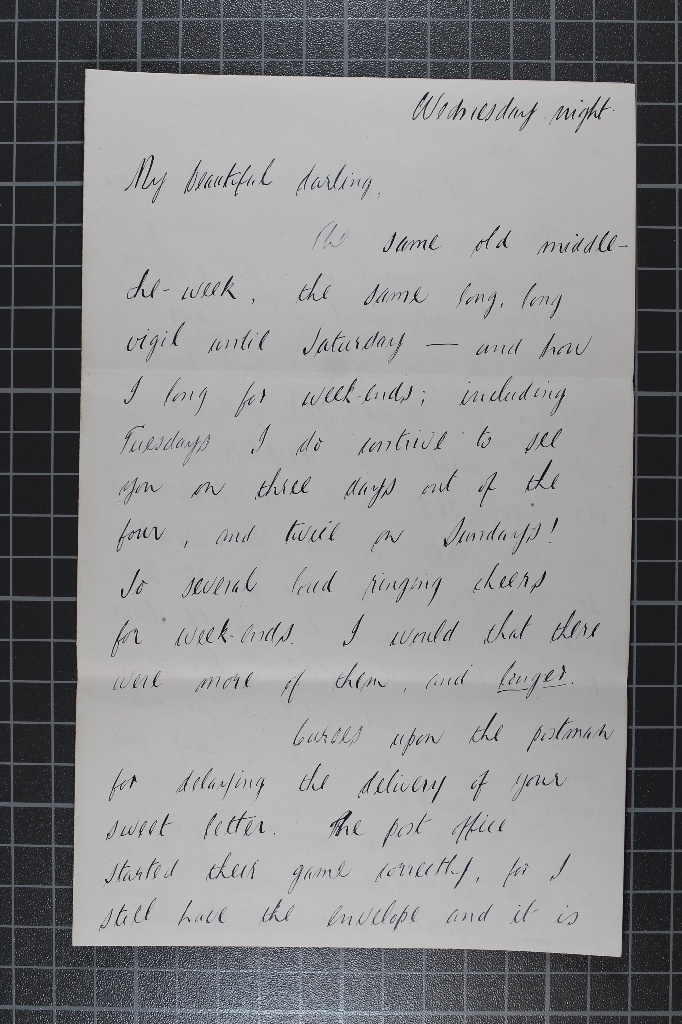 Wednesday night.
My beautiful darling,
The same old middle-
the-week, the same long, long
vigil until Saturday — and how
I long for week-ends; including
Tuesdays I do contrive to see
you on three days out of the
four, and twice on Sundays!
So several loud ringing cheers
for week-ends. I would that there
were more of them, and longer.
Curses upon the postman
for delaying the delivery of your
sweet letter. The post office
started their game correctly, for I
still have the envelope and it is